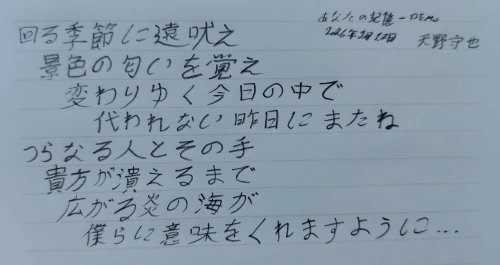 あなたの記憶 - DEMO
2026年2月20日 天野守也
回る季節に遠吠え
景色の匂いを覚え
変わりゆく今日の中で
代われない昨日にまたね
つらなる人とその手
貴方が潰えるまで
広がる炎の海が
僕らに意味をくれますように...